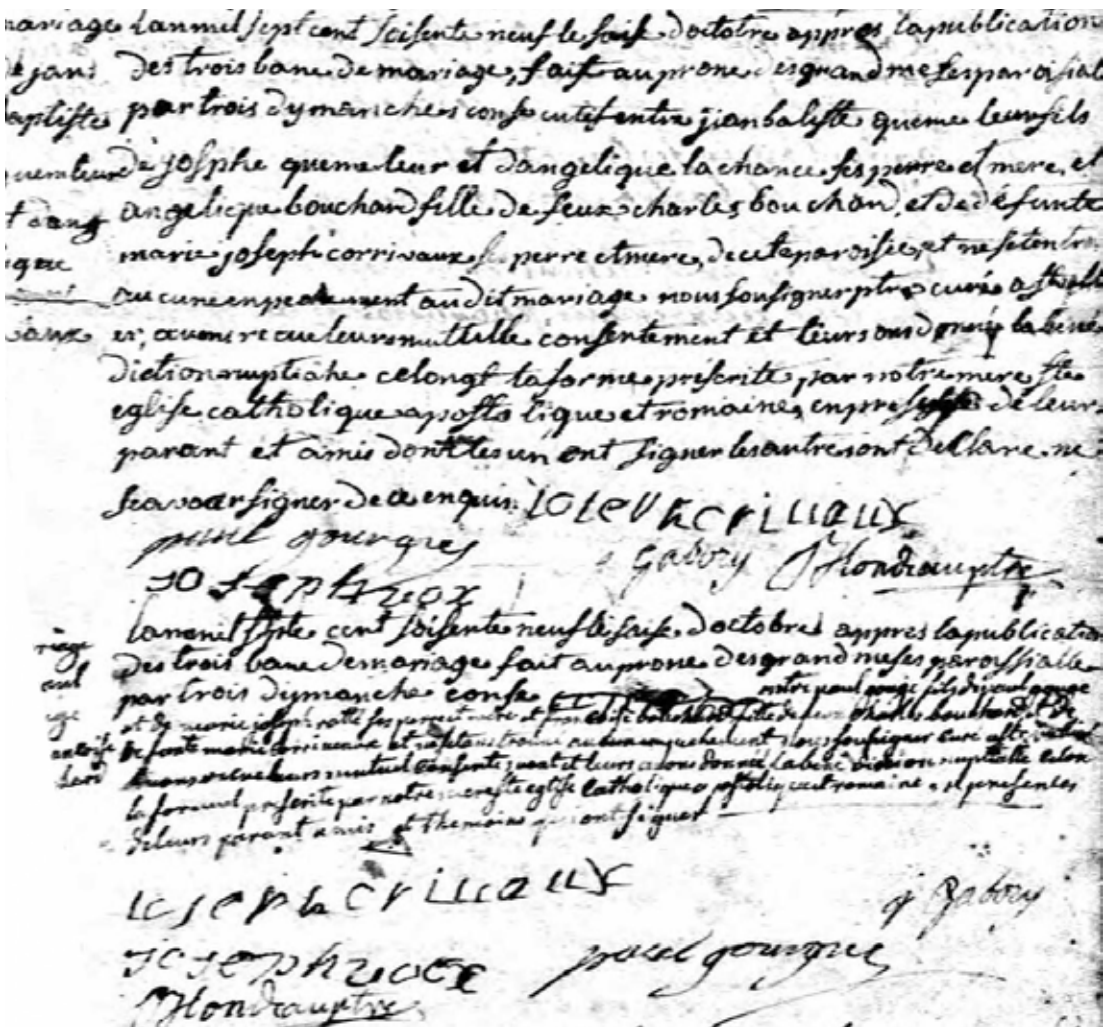 mariage lan mil sept cent soisente neuf le saise doctobre appres la publication
de jans des trois banc de mariage, fait au prone des grand meses paroisial
baptiste par trois dymanche consecutef entre jianbatiste quemeleur fils
quemleur de josphe quemeleur et dangelique lachance ses perre et mere, et
et dang angelicque bouchard fille de feux charles bouchard, et de defunte
marie joseph corrivaux ses perre et mere, de cete paroisse, et ne setentrouve
aucune enpechement audit mariage nous sousigner ptre curé a
avons recue leurs muttuelle consentement et leurs avons donnéz la béné
diction nuptiahe celongt la forme préscrite par notre mere ste
eglise catholique apostolique et romaine, en presence de leurs
parant et amis dont les un ont signer les autre ont declare ne
scavoir signer de ce enquis. ioseph criuaux
paul gourges j Gabory Hondeau ptre
joseph
lan mil septe cent soisente neuf le saise doctobre appres la publication
riage des trois banc de mariage fait au prone des grand meses paroissialle
par trois dymanche conse entre paul gouge fils de paul gouge
et de marie joseph ratté ses perre et mere et francoise bouchard fille de feux charles bouchard et de
defunte marie corriveaux et ne setans trouvé aucun enpechement nous sousigner curé
avons recue leurs mutuel consentement et leurs avons donnée la bene diction nuptialle celon
la forme prescrite par notre mere ste eglise catholique apostolique et romaine en presences
de leurs parant amis et themoins qui ont signer
ioseph criuaux
j Gabory
joseph paul gourges
Hondeau ptre